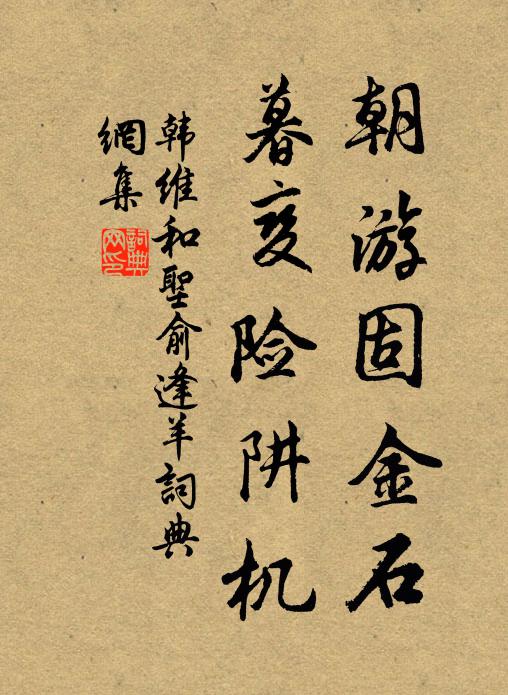 朝游固金石
暮变险阱机
韩维和聖俞逢羊詞典
網集
詞典
网印